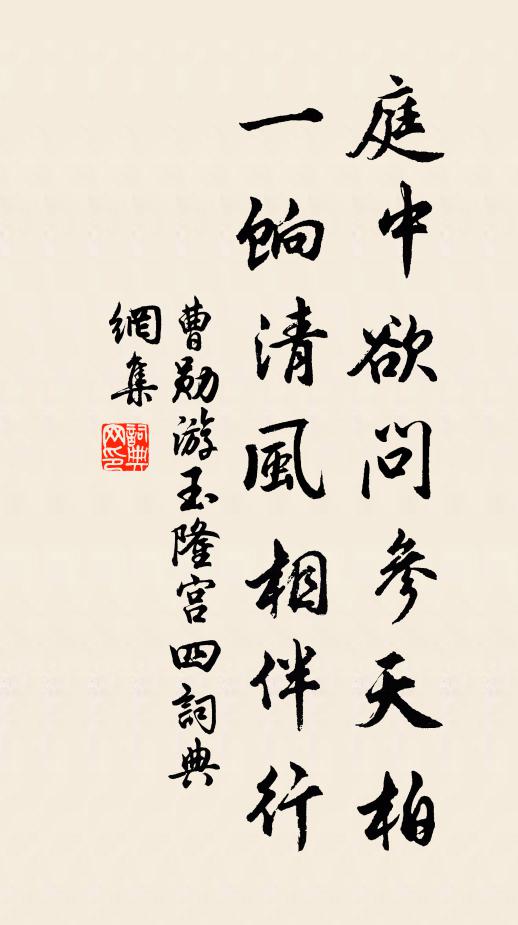 庭中欲問參天柏
一餉清風相伴行
曹勛游玉隆宮四詞典
網集
詞典
网印